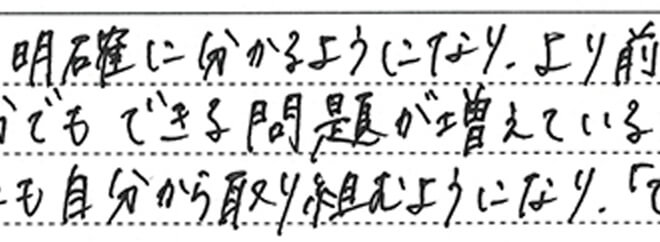 明確に分かるようになり、より前
でも できる問題が増えている
も自分から取り組むようになり、「